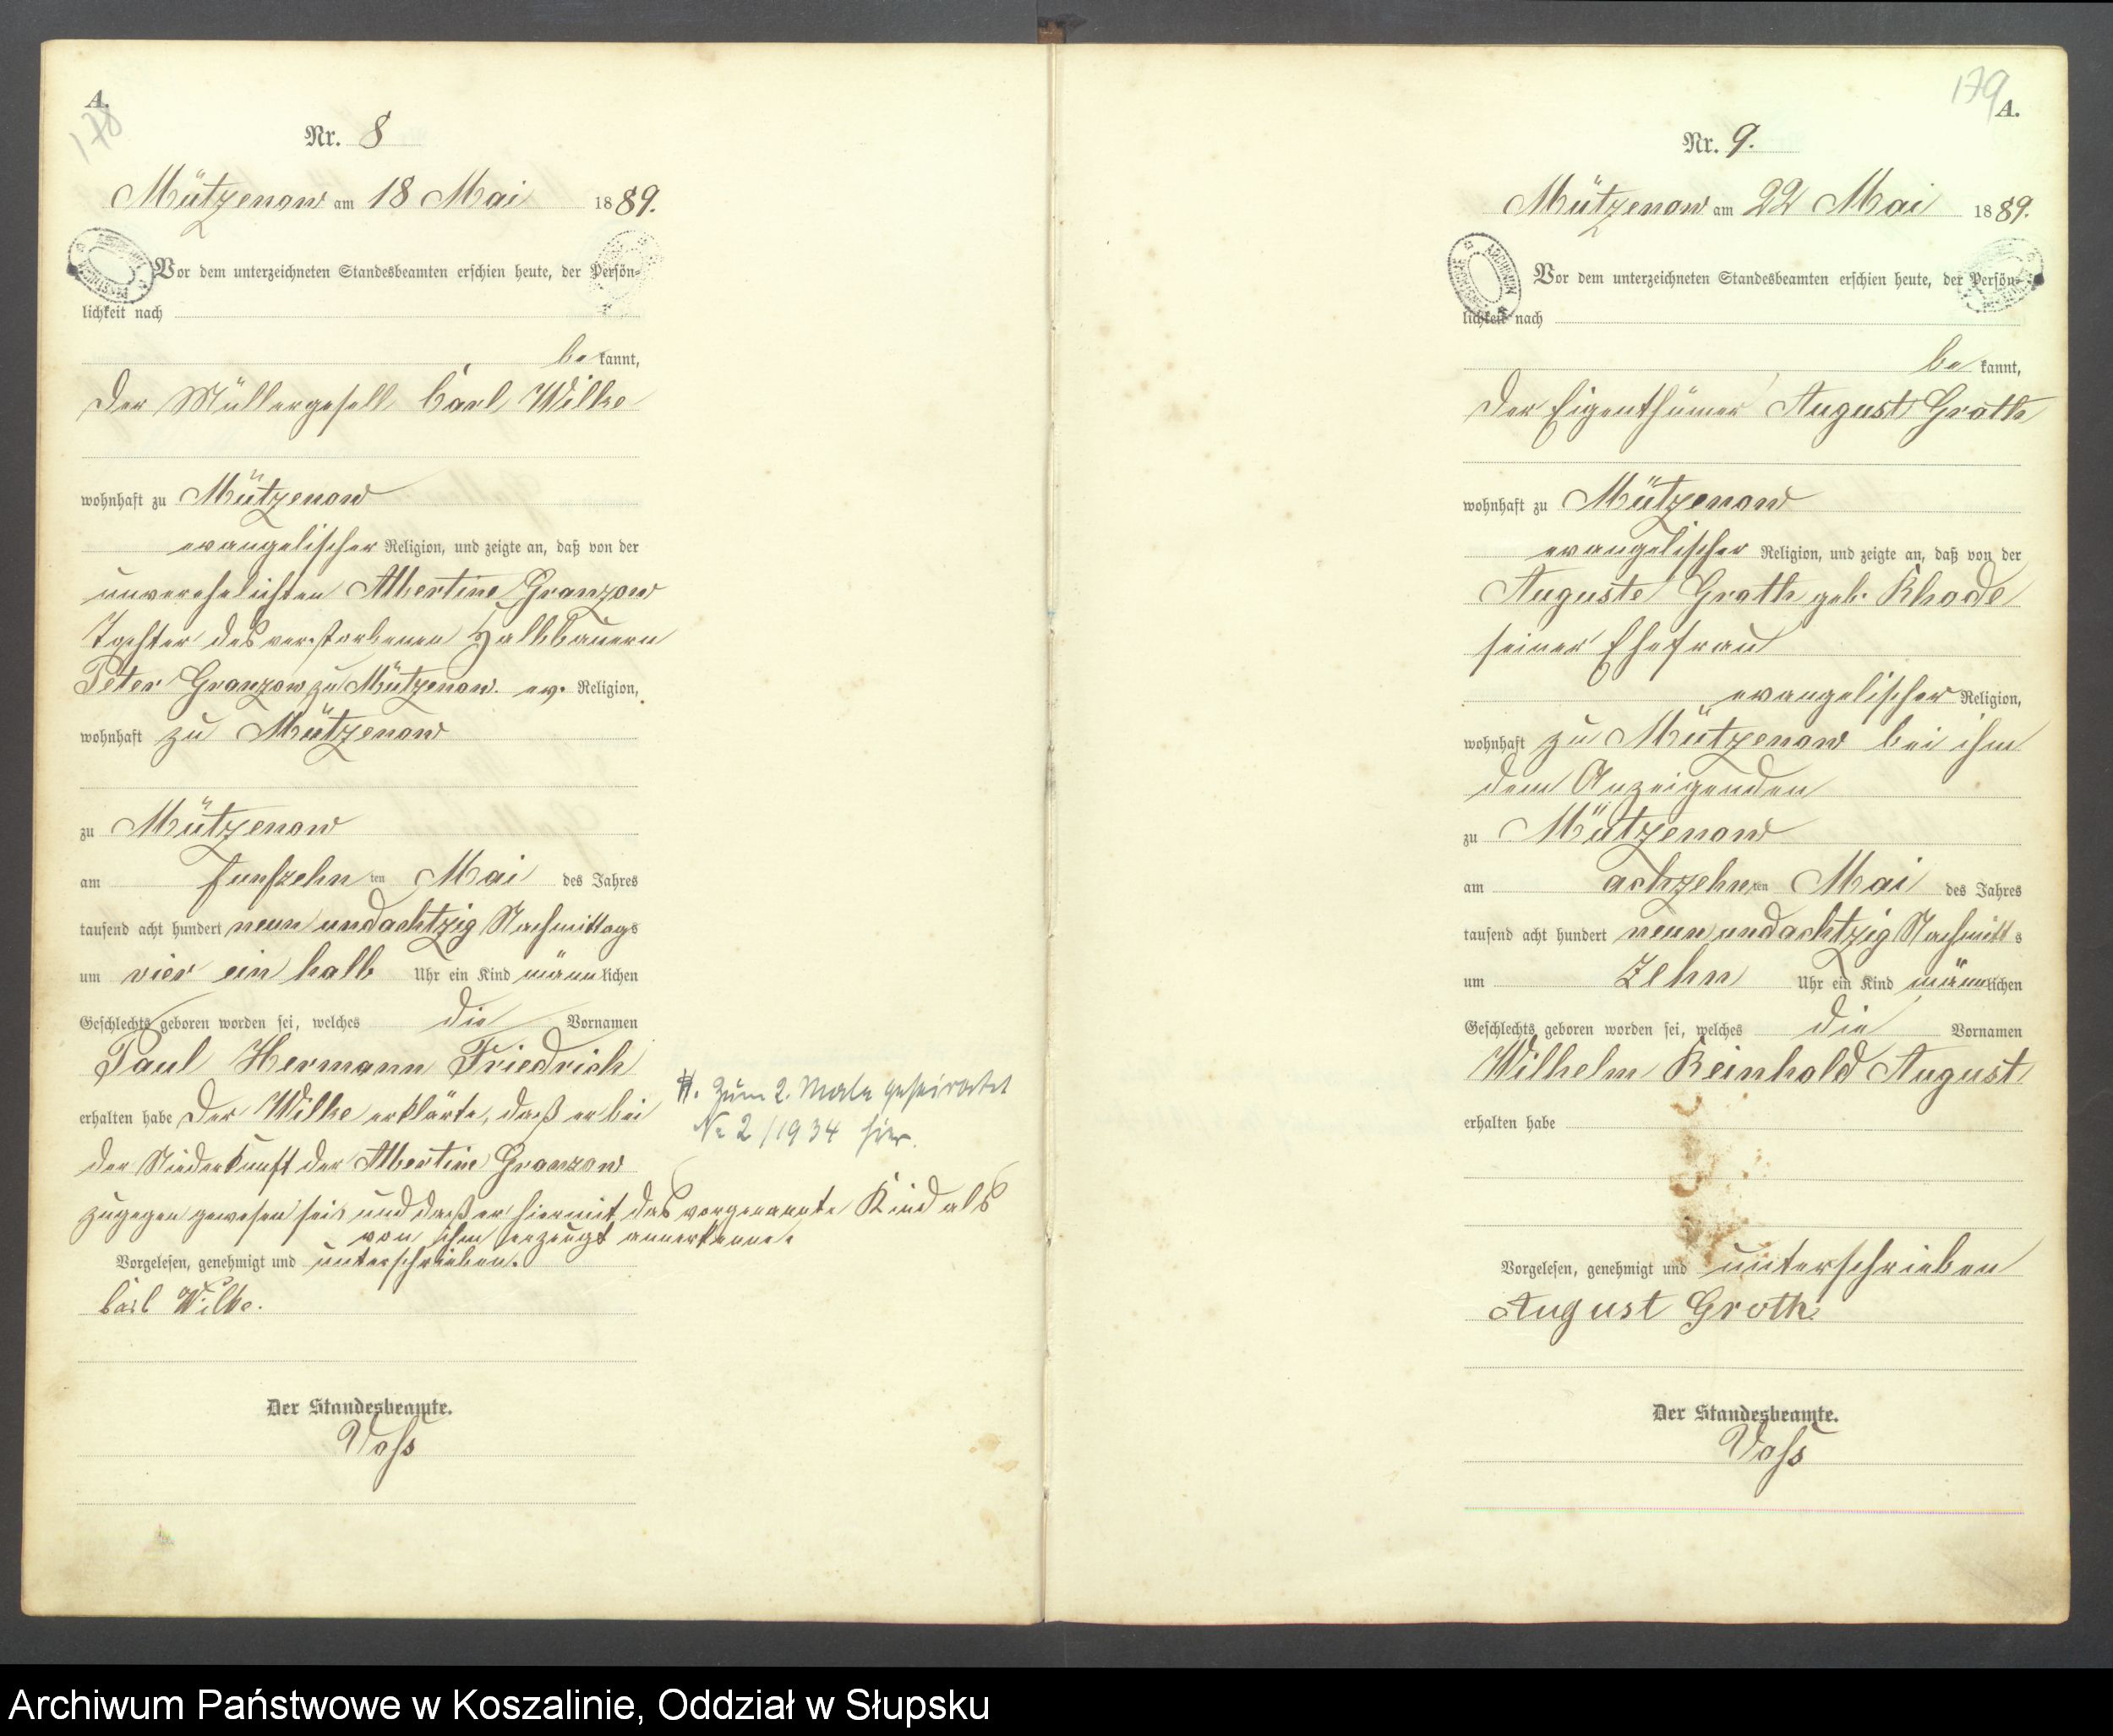 A.
178
Nr. 8
Mützenow am 18 Mai 1889.
Vor dem unterzeichneten Standesbeamten erschien heute, der Persön-
lichkeit nach
be kannt,
der Müllergesell Carl Wilke
wohnhaft zu Mützenow
evangelischer Religion, und zeigte an, daß von der
unverehelichten Albertine Granzow
Tochter des verstorbenen Halbbauern
Peter Granzow zu Mützenow. ev. Religion,
wohnhaft zu Mützenow
zu Mützenow
am funfzehn ten Mai des Jahres
tausend acht hundert neun und achtzig Nachmittags
um vier ein halb Uhr ein Kind männlichen
Geschlechts geboren worden sei, welches die Vornamen
Paul Hermann Friedrich
erhalten habe Der Wilke erklärte, daß er bei
der Niederkunft der Albertine Granzow
zugegen gewesen sei und daß er hiermit das vorgenannte Kind als
von ihm erzeugt anerkenne.
Vorgelesen, genehmigt und unterschrieben.
Carl Wilke.
Der Standesbeamte.
Voss
H. Zum 2. Male geheiratet
Nr 2/1934 hier.
179
A.
Nr. 9.
Mützenow am 22 Mai 1889.
Vor dem unterzeichneten Standesbeamten erschien heute, der Persön-
lichkeit nach
be kannt,
der Eigenthümer August Groth
wohnhaft zu Mützenow
evangelischer Religion, und zeigte an, daß von der
Auguste Groth geb. Rhode
seiner Ehefrau
evangelischer Religion,
wohnhaft zu Mützenow bei ihm
dem Anzeigenden
zu Mützenow
am achzehn ten Mai des Jahres
tausend acht hundert neun und achtzig Nachmitt s
um Zehn Uhr ein Kind männlichen
Geschlechts geboren worden sei, welches die Vornamen
Wilhelm Reinhold August
erhalten habe
Vorgelesen, genehmigt und unterschrieben
August Groth.
Der Standesbeamte.
Voss
Archiwum Państwowe w Koszalinie, Oddział w Słupsku